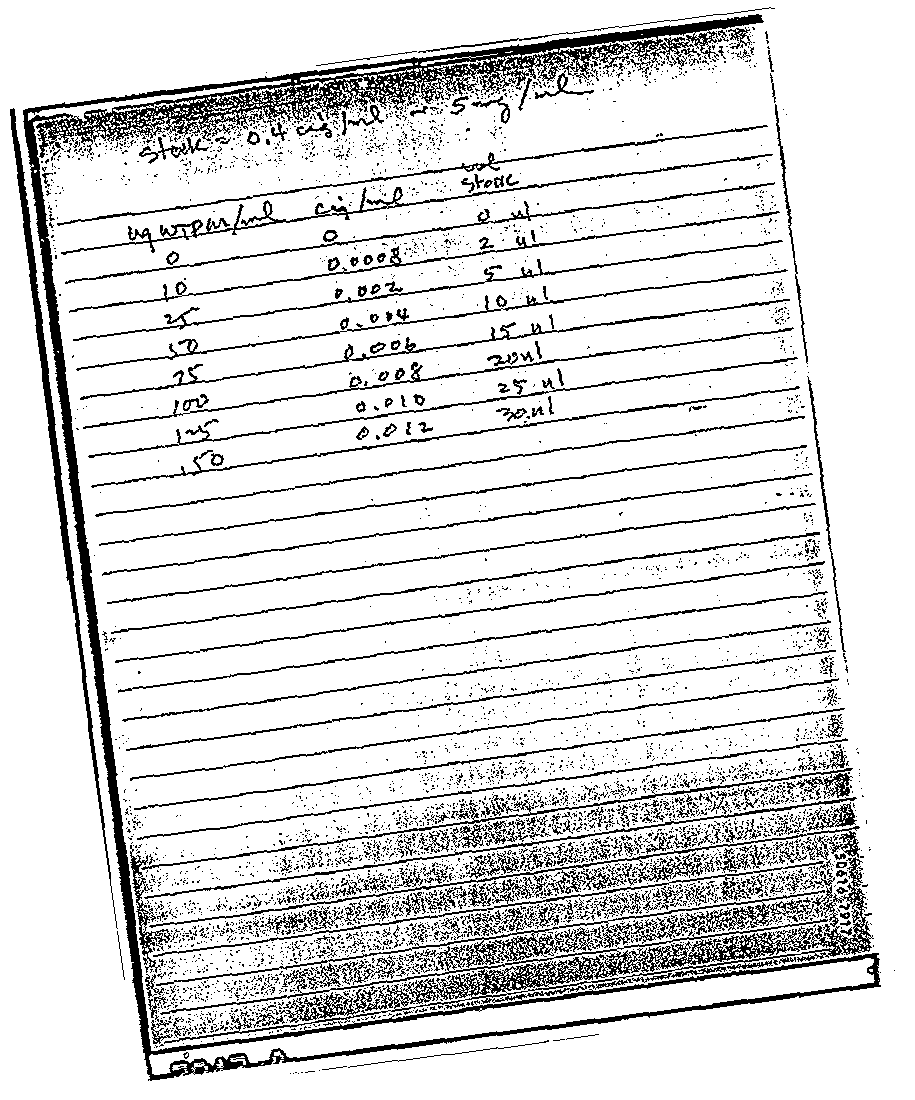 Stock = 0.4 cig/ml ~ 5mg/ml
vol
ug WTPM/ml cig/ml Stock
0 0 0 ul
10 0.0008 2 ul
25 0.002 5 ul
50 0.004 10 ul
75 0.006 15 ul
100 0.008 20 ul
125 0.010 25 ul
150 0.012 30 ul